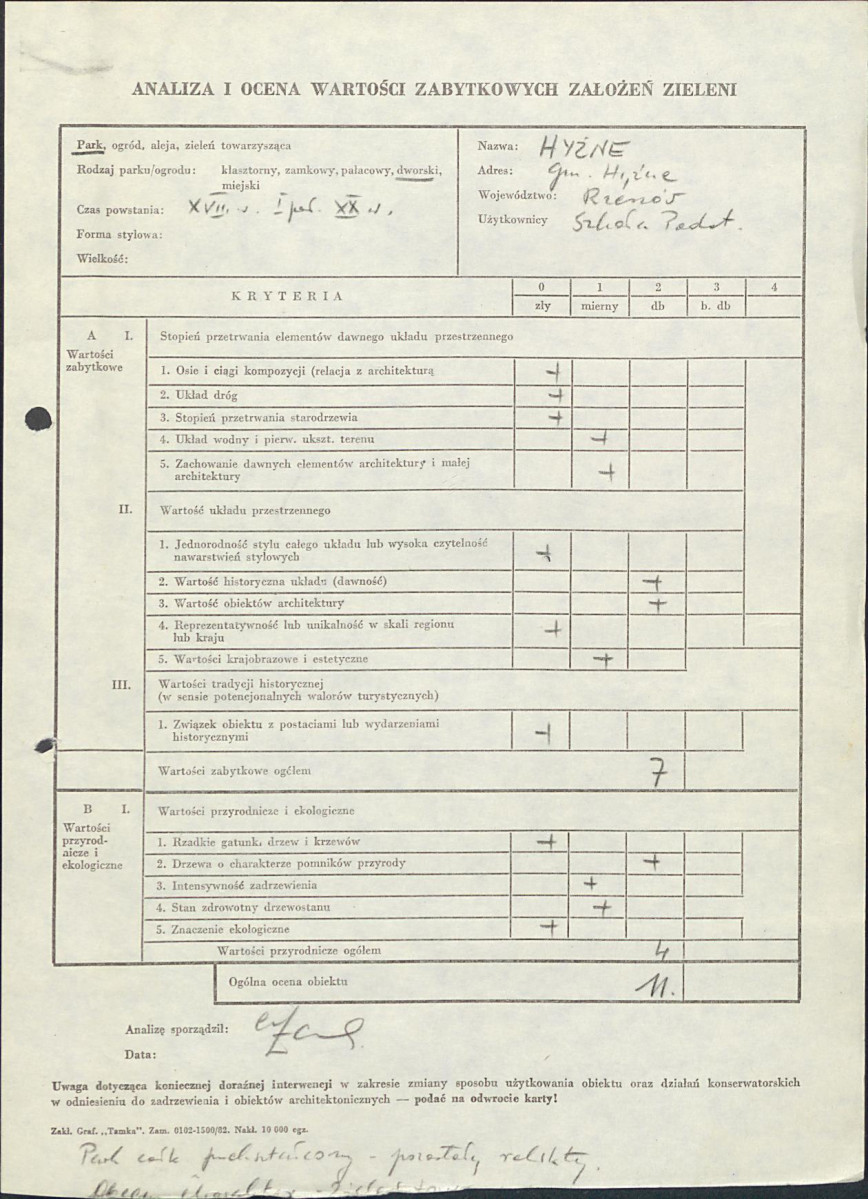 ANALIZA I OCENA WARTOŚCI ZABYTKOWYCH ZAŁOŻEŃ ZIELENI
Park, ogród, aleja, zieleń towarzysząca
Rodzaj parku/ogrodu: klasztorny, zamkowy, pałacowy, dworski,
miejski
Czas powstania: XVII. w. I poł. XX w.
Forma stylowa:
Wielkość:
Nazwa: HYŻNE
Adres: gm. Hyżne
Województwo: Rzeszów
Użytkownicy Szkoła Podst.
KRYTERIA
0 1 2 3 4
zły mierny db b. db
A I. Stopień przetrwania elementów dawnego układu przestrzennego
Wartości
zabytkowe
1. Osie i ciągi kompozycji (relacja z architekturą +
2. Układ dróg +
3. Stopień przetrwania starodrzewia +
4. Układ wodny i pierw. ukszt. terenu +
5. Zachowanie dawnych elementów architektury i małej
architektury +
II. Wartość układu przestrzennego
1. Jednorodność stylu całego układu lub wysoka czytelność
nawarstwień stylowych +
2. Wartość historyczna układu (dawność) +
3. Wartość obiektów architektury +
4. Reprezentatywność lub unikalność w skali regionu
lub kraju +
5. Wartości krajobrazowe i estetyczne +
III. Wartości tradycji historycznej
(w sensie potencjonalnych walorów turystycznych)
1. Związek obiektu z postaciami lub wydarzeniami
historycznymi +
Wartości zabytkowe ogółem 7
B I. Wartości przyrodnicze i ekologiczne
Wartości
przyrod-
nicze i
ekologiczne
1. Rzadkie gatunki drzew i krzewów +
2. Drzewa o charakterze pomników przyrody +
3. Intensywność zadrzewienia +
4. Stan zdrowotny drzewostanu +
5. Znaczenie ekologiczne +
Wartości przyrodnicze ogółem 4
Ogólna ocena obiektu 11.
Analizę sporządził:
Data:
Uwaga dotycząca koniecznej doraźnej interwencji w zakresie zmiany sposobu użytkowania obiektu oraz działań konserwatorskich
w odniesieniu do zadrzewienia i obiektów architektonicznych — podać na odwrocie karty!
Zakł. Graf. „Tamka". Zam. 0102-1500/82. Nakł. 10 000 egz.
Park całk. przekształcony - pozostały relikty.